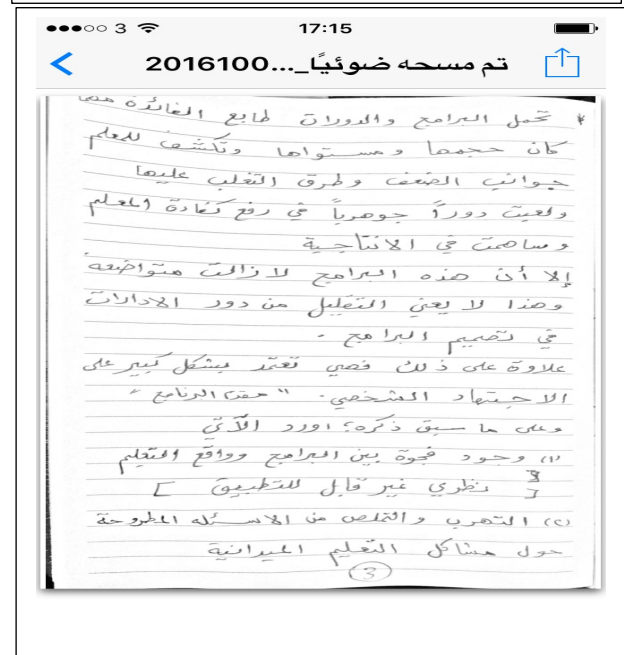 3 17:15
تم مسحه ضوئيًا_...2016100
* تحمل البرامج والدورات طابع الفائدة مهما
كان حجمها ومستواها وتكشف للمعلم
جوانب الضعف وطرق التغلب عليها
ولعبت دوراً جوهرياً في رفع كفاءة المعلم
وساهمت في الانتاجية
إلا أن هذه البرامج لا زالت متواضعه
وهذا لا يعني التقليل من دور الادارات
في تصميم البرامج .
علاوة على ذلك فهي تعتمد بشكل كبير على
الاجتهاد الشخصي . " البرنامج "
وعلى ما سبق ذكره؛ اورد الآتي
(١) وجود فجوة بين البرامج وواقع التعليم
[ نظري غير قابل للتطبيق ]
(٢) التهرب والتملص من الاسئله المطروحة
حول مشاكل التعليم الميدانية
3